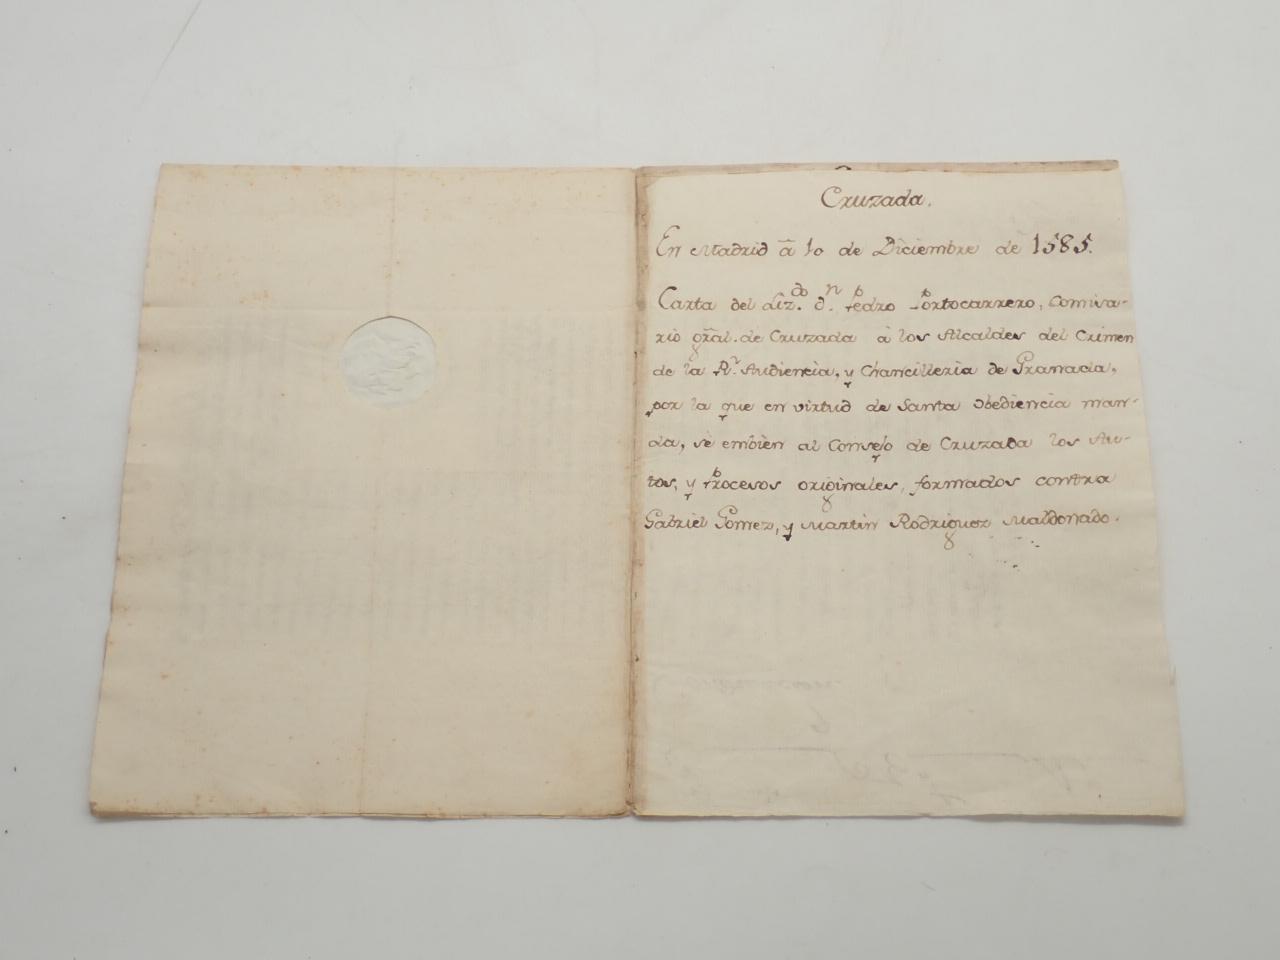 Cruzada.
En Madrid â 10 de Diciembre de 1585.
Carta del Liz.do d.n Pedro Portocarrero, Comisa-
rio gral. de Cruzada à los Alcaldes del Crimen
de la R.l Audiencia, y Chancilleria de Granada,
por la que en virtud de Santa Obediencia man-
da, se embien al Consejo de Cruzada los Au-
tos, y Procesos originales, formados contra
Gabriel Gomez, y Martin Rodriguez Maldonado.